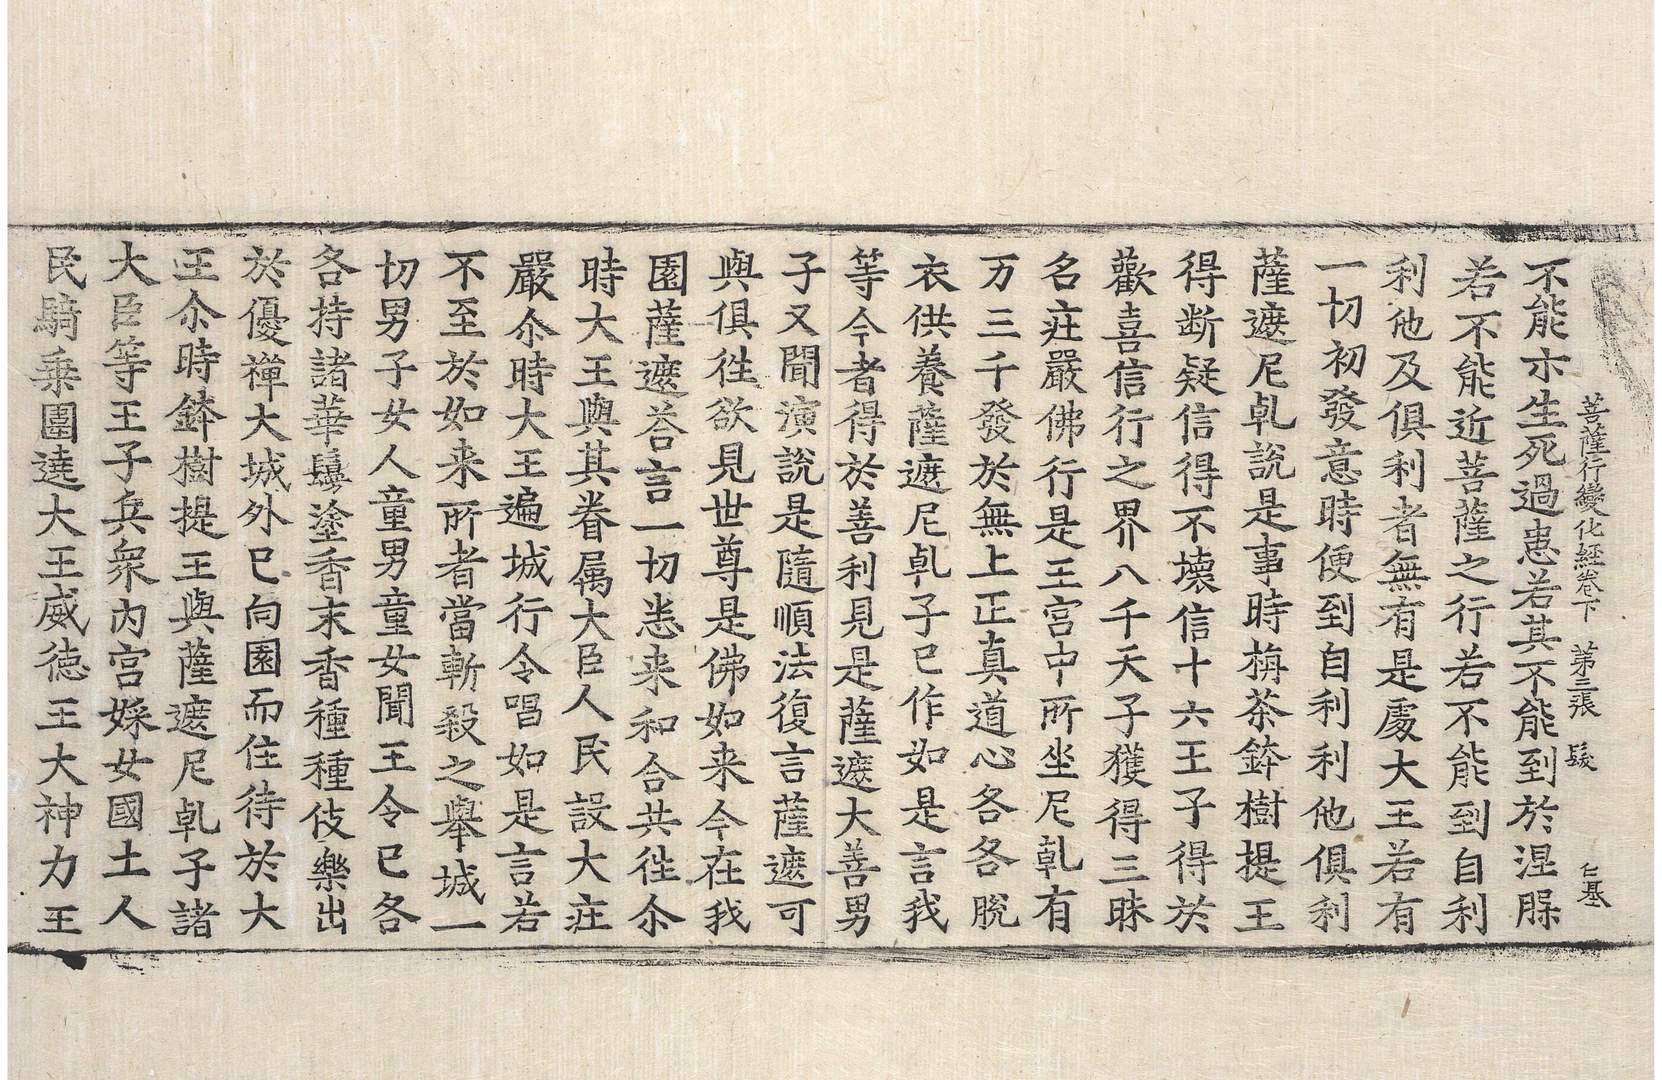 菩薩行變化經卷下 第三張 髮 仁基
不能亦生死過患若其不能到於涅脲
若不能近菩薩之行若不能到自利
利他及俱利者無有是處大王若有
一切初發意時便到自利利他俱利
薩遮尼乹說是事時栴荼鉢樹提王
得断疑信得不壞信十六王子得於
歡喜信行之界八千天子獲得三昧
名莊嚴佛行是王宮中所坐尼乹有
万三千發於無上正真道心各各脫
衣供養薩遮尼乹子已作如是言我
等今者得於善利見是薩遮大善男
子又聞演說是隨順法復言薩遮可
與俱徃欲見世尊是佛如来今在我
園薩遮荅言一切悉来和合共徃尒
時大王與其眷属大臣人民設大莊
嚴尒時大王遍城行令唱如是言若
不至於如来所者當斬殺之舉城一
切男子女人童男童女聞王令已各
各持諸華鬘塗香末香種種伎樂出
於優禪大城外已向園而住待於大
王尒時鉢樹提王與薩遮尼乹子諸
大臣等王子兵衆內宮婇女國土人
民騎乗圍遶大王威徳王大神力王